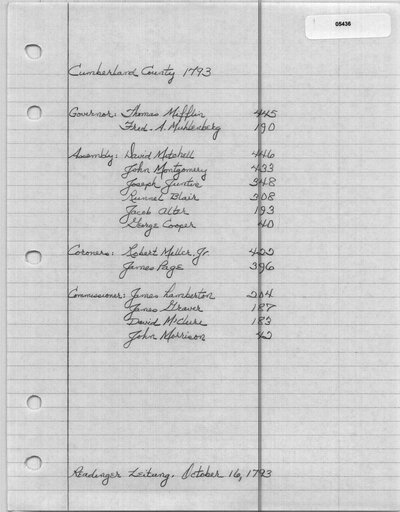 05436
Cumberland County 1793
Governor: Thomas Mifflin 445
Fred. A. Muhlenberg 190
Assembly: David Mitchell 446
John Montgomery 433
Joseph Junkin 348
Runnel Blair 308
Jacob Alter 193
George Cooper 40
Coroners: Robert Miller, Jr. 422
James Page 396
Commissioner: James Lamberton 204
James Graver 187
David McClure 183
John Morrison 42
Readinger Zeitung, October 16, 1793